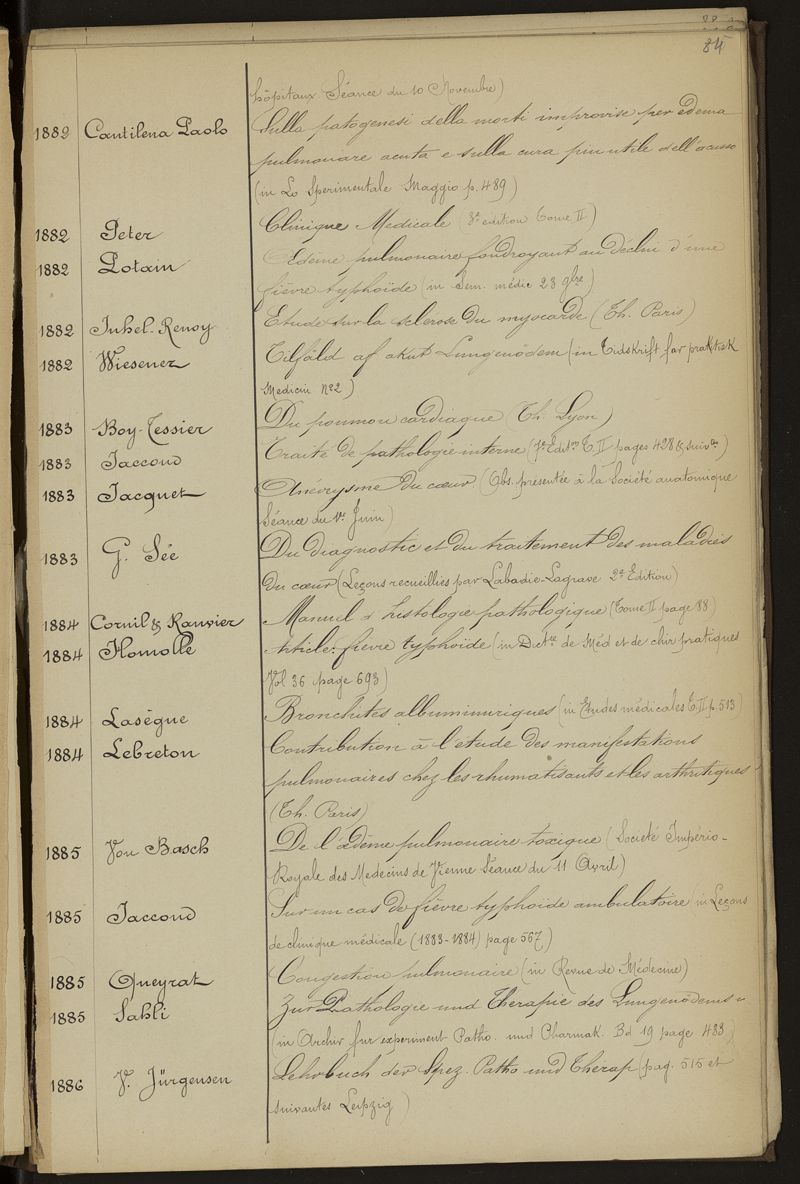 84
hôpitaux Séance du 10 Novembre)
1882 Cantilena Paolo Sulla patogenesi della morti improvise per edema
pulmonare acuta e sulla cura piu utile dell'acusso
(in Lo Sperimentale Maggio p. 489)
1882 Peter Clinique Medicale (3e edition Tome II)
1882 Potain Œdème pulmonaire foudroyant au déclin d'une
fièvre typhoïde (in Sem. médic 23 9bre)
1882 Juhel-Renoy Etude sur la sclerose du myocarde (Th. Paris)
1882 Wiesener Tilfäld af akut Lungenödem (in Tidskrift far praktisk
Medicin No 2)
1883 Boy-Tessier Du poumon cardiaque (Th. Lyon)
1883 Jaccoud Traité de pathologie interne (7e Editon T. II pages 428 & suivtes)
1883 Jacquet Anévrysme du cœur (Obs. presentée à la Société anatomique
Séance du 1er Juin)
1883 G. Sée Du diagnostic et du traitement des maladies
du cœur (Leçons recueillies par Labadie-Lagrave 2e Edition)
1884 Cornil & Ranvier Manuel d'histologie pathologique (Tome II page 88)
1884 Homolle Article: fièvre typhoïde (in Dictre de Méd et de chir pratiques
Vol 36 page 693)
1884 Lasègue Bronchites albuminuriques (in Etudes médicales T. II p. 513)
1884 Lebreton Contribution à l'etude des manifestations
pulmonaires chez les rhumatisants et les arthritiques
(Th. Paris)
1885 Von Basch De l'œdème pulmonaire toxique (Societé Império-
Royale des Medecins de Vienne Séance du 11 Avril)
1885 Jaccoud Sur un cas de fièvre typhoide ambulatoire (in Leçons
de clinique médicale (1883-1884) page 567)
1885 Queyrat Congestion pulmonaire (in Revue de Médecine)
1885 Sahli Zur Pathologie und Therapie des Lungenödems
(in Archiv fur experiment Patho. und Pharmak. Bd 19 page 433)
1886 V. Jürgensen Lehrbuch der Spez. Patho und Therap (pag. 515 et
suivantes Leipzig)